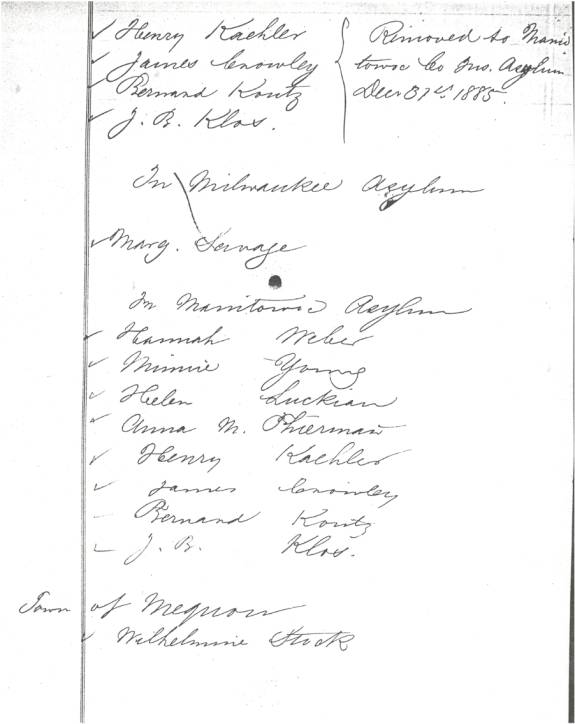 ✓ Henry Kaehler { Removed to Mani
✓ James Crowley towoc Co Ins. Asylum
✓ Bernard Kontz Decr 31st 1885.
✓ J. B. Klos.
In Milwaukee Asylum
✓ Marg. Savage
In Manitowoc Asylum
✓ Hannah Weber
✓ Minnie Young
✓ Helen Luckian
✓ Anna M. Phierman
✓ Henry Kaehler
✓ James Crowley
Bernard Kontz
J. B. Klos.
Town of Mequon
✓ Wilhelmine Stuck